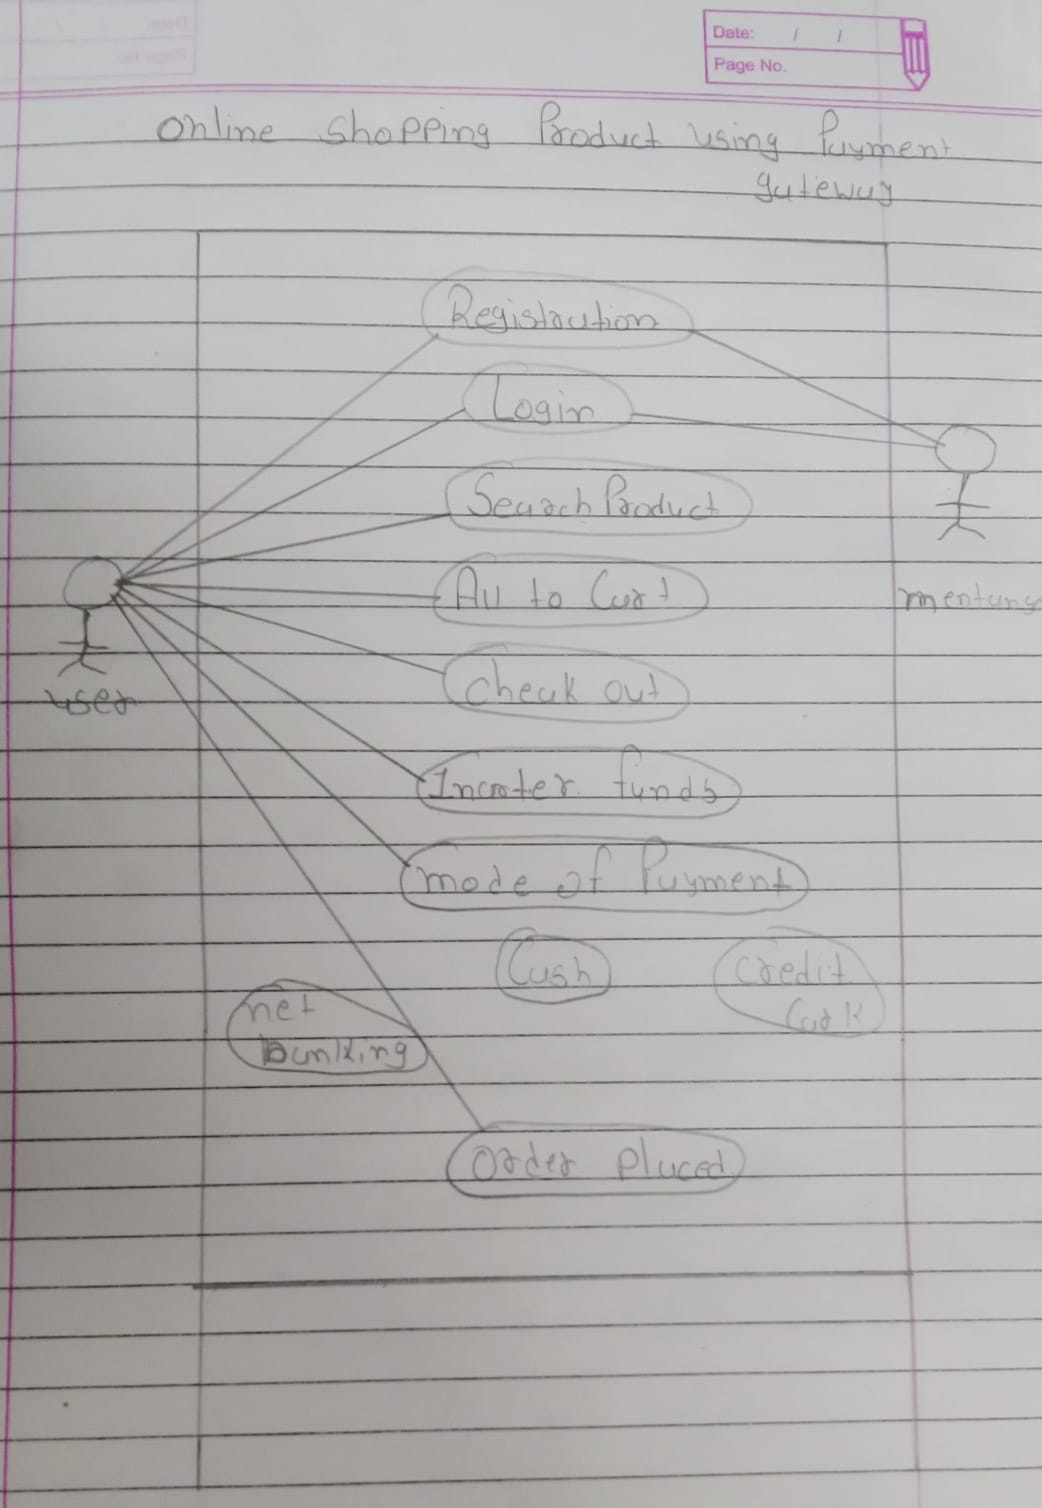 Date: / /
Page No.
Online Shopping Product using Payment
gateway
Registration
Login
Search Product
All to Cart
Check out
funds
mode of Payment
Cash
Credit
net
banking
Order Placed
user